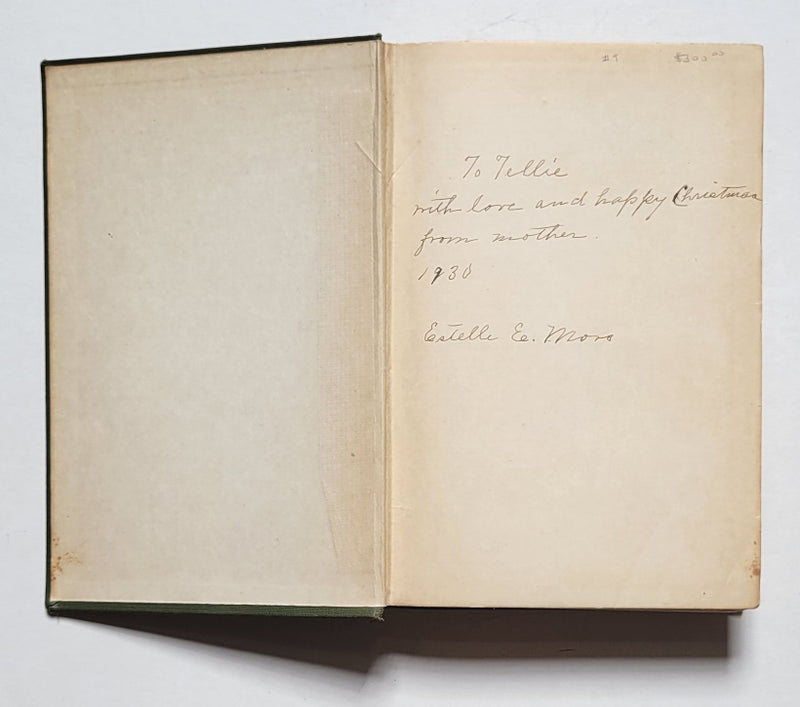 $300.00
To Tellie
with love and happy Christmas
from mother.
1930
Estelle E. Moro